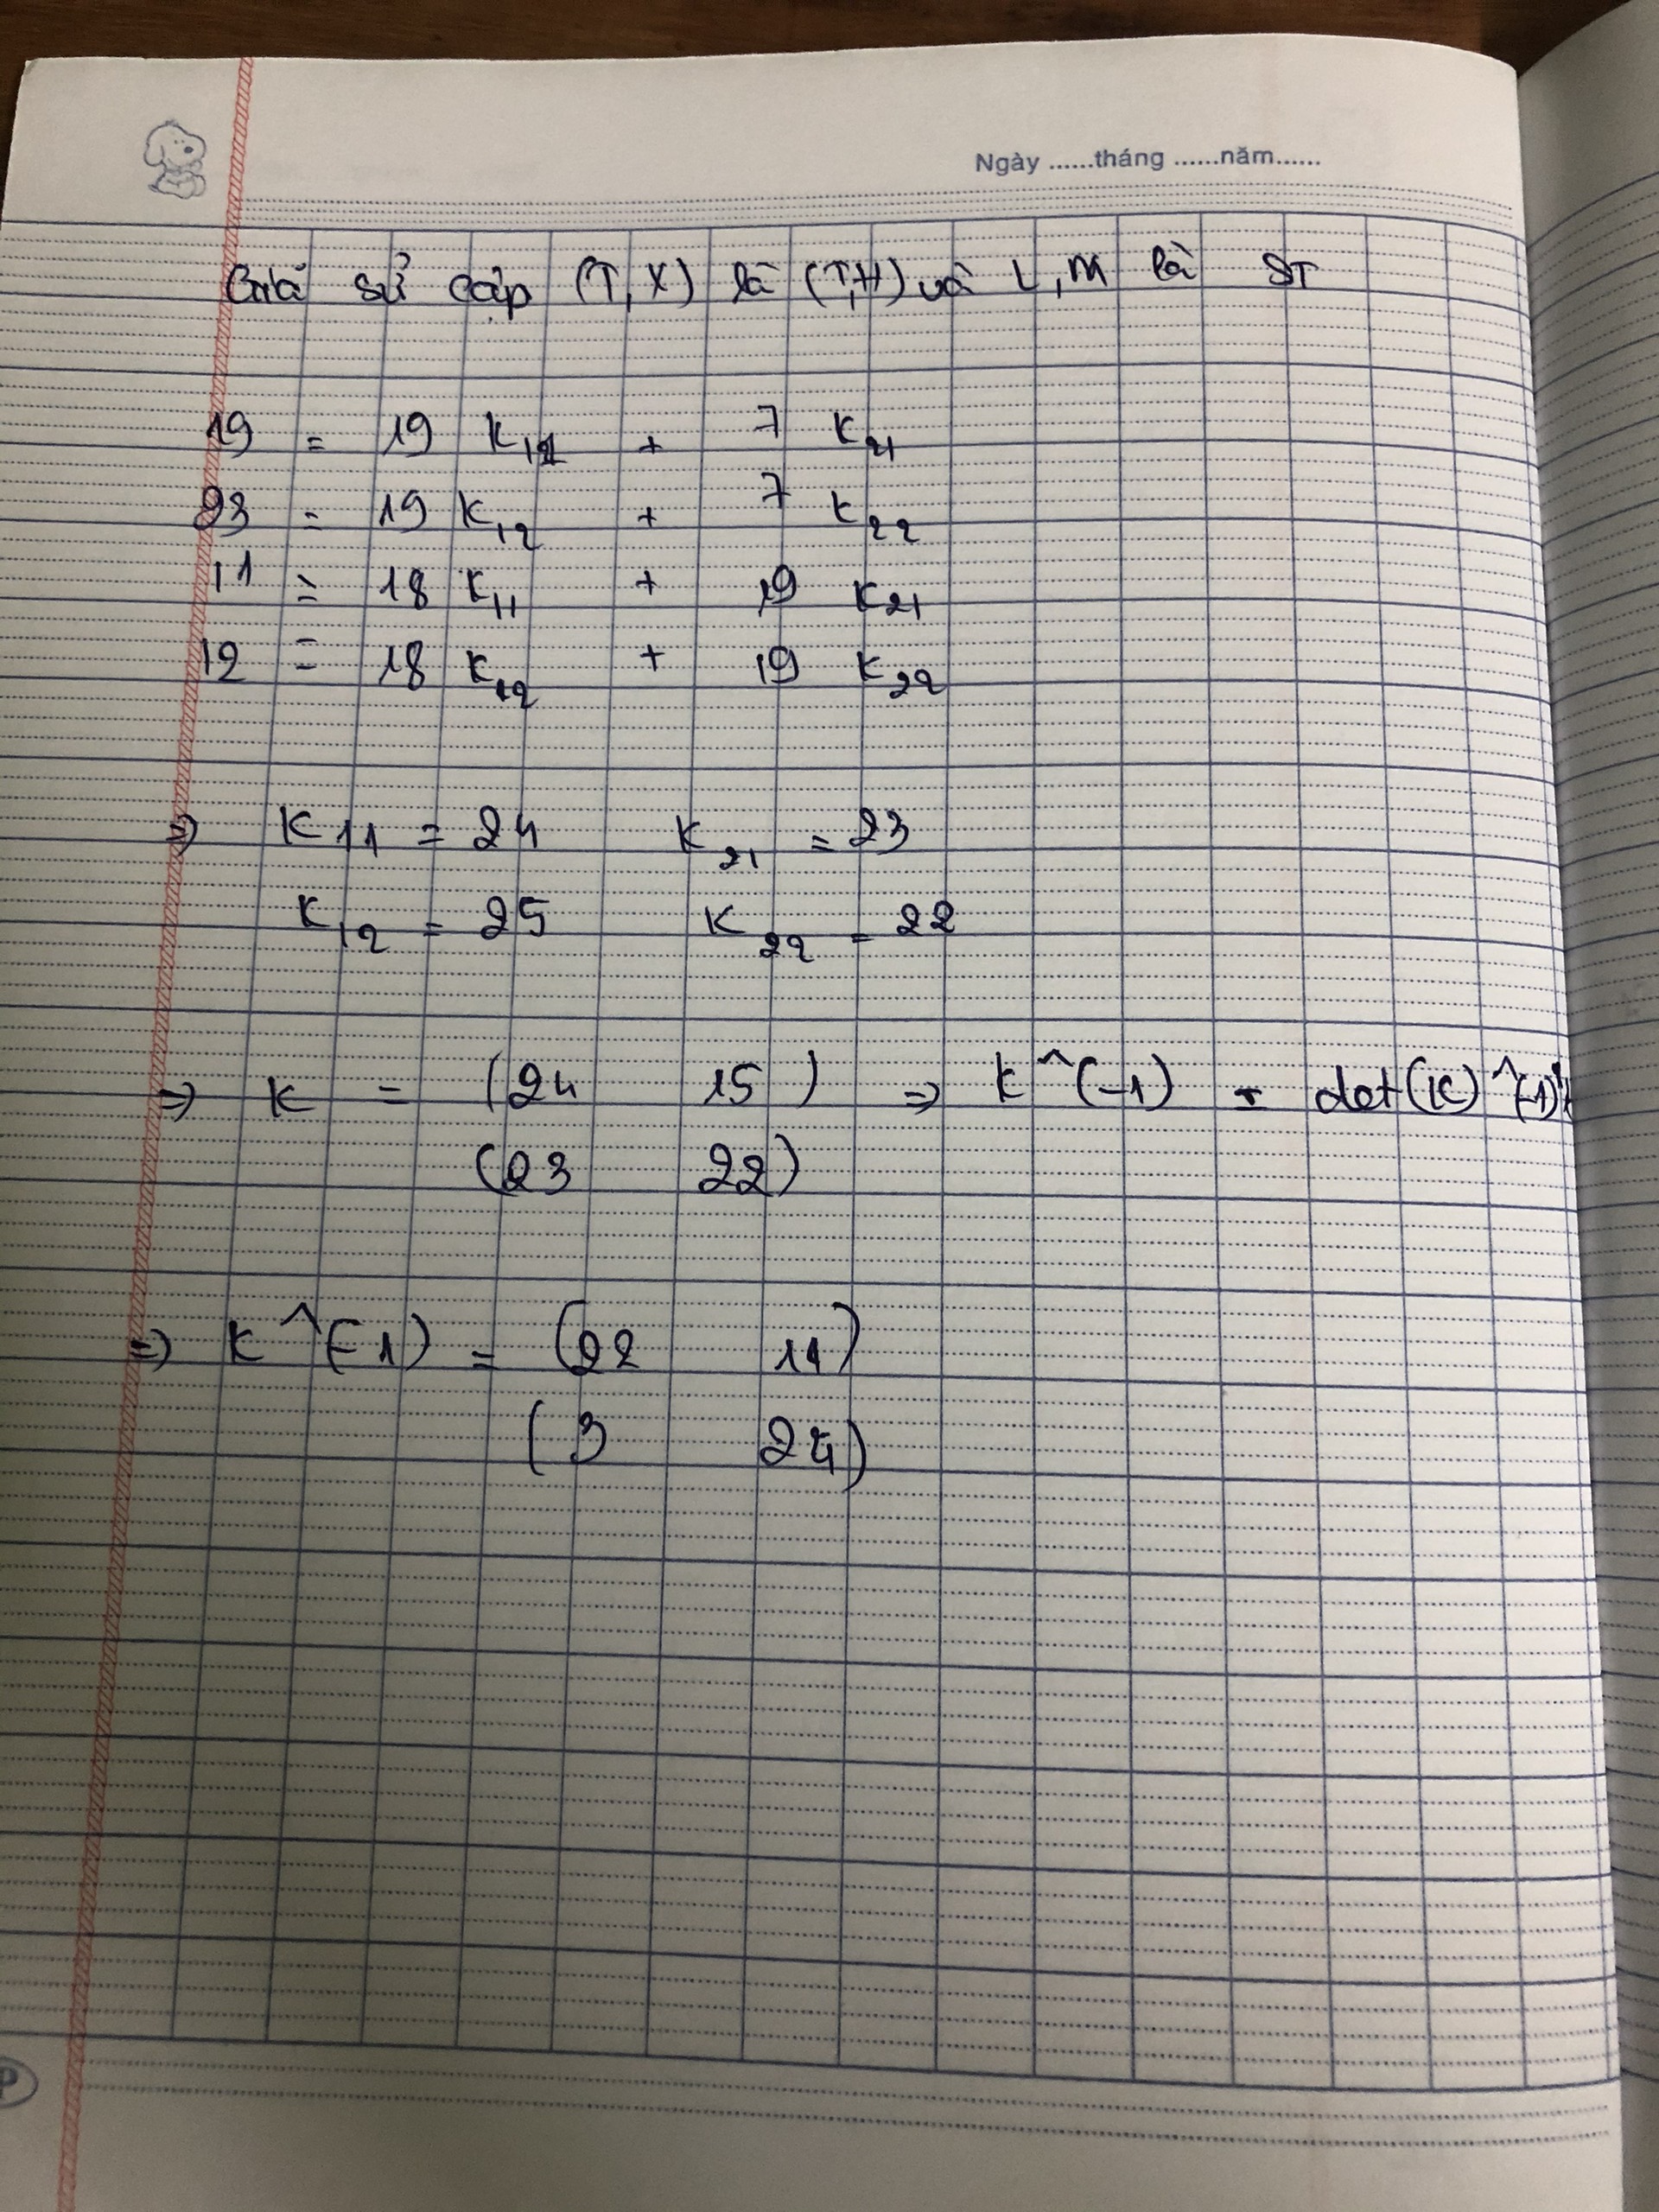 Ngày ......tháng ......năm......
Giả sử cặp (T, X) là (T,H) và L, M là ST
19 = 19 K11 + 7 K21
23 = 19 K12 + 7 K22
11 = 18 K11 + 19 K21
12 = 18 K12 + 19 K22
=> K11 = 24 K21 = 23
K12 = 25 K22 = 22
=> K = (24 15) => K^(-1) = det(K)^(-1)
(23 22)
=> K^(-1) = (22 11)
(3 24)
P